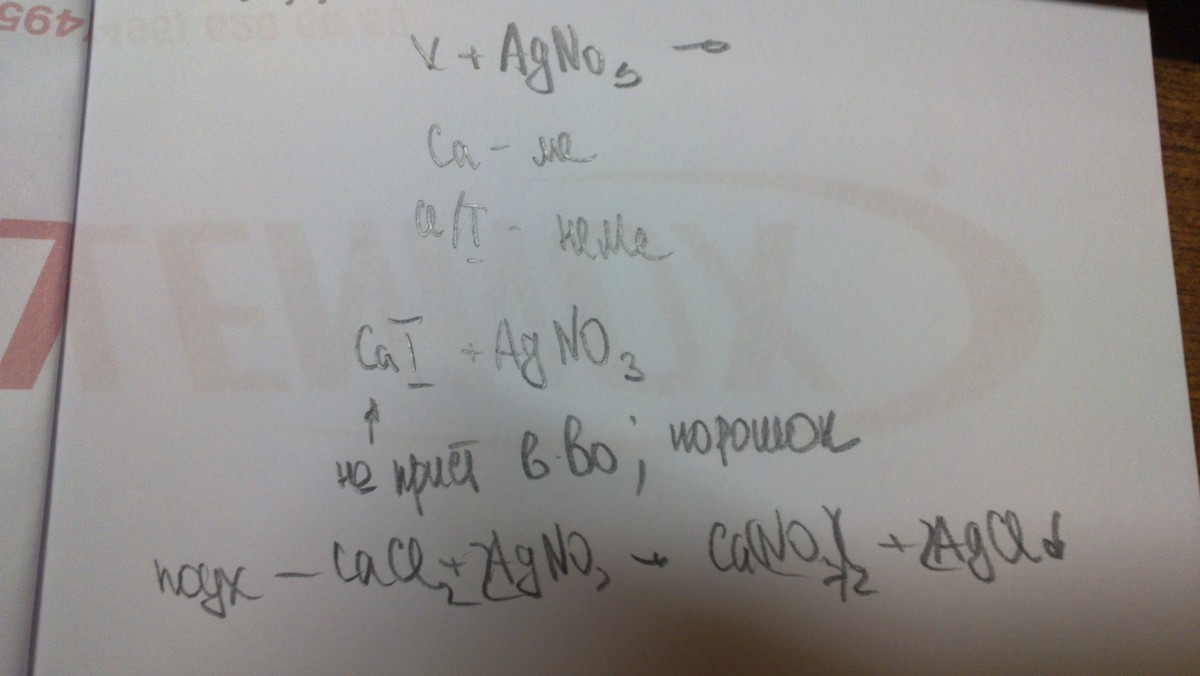 X + AgNO3 →
Ca - ме
Cl/I - неме
CaI + AgNO3
↑
не прист в-во; порошок
подх - CaCl2 + 2AgNO3 → Ca(NO3)2 + 2AgCl↓